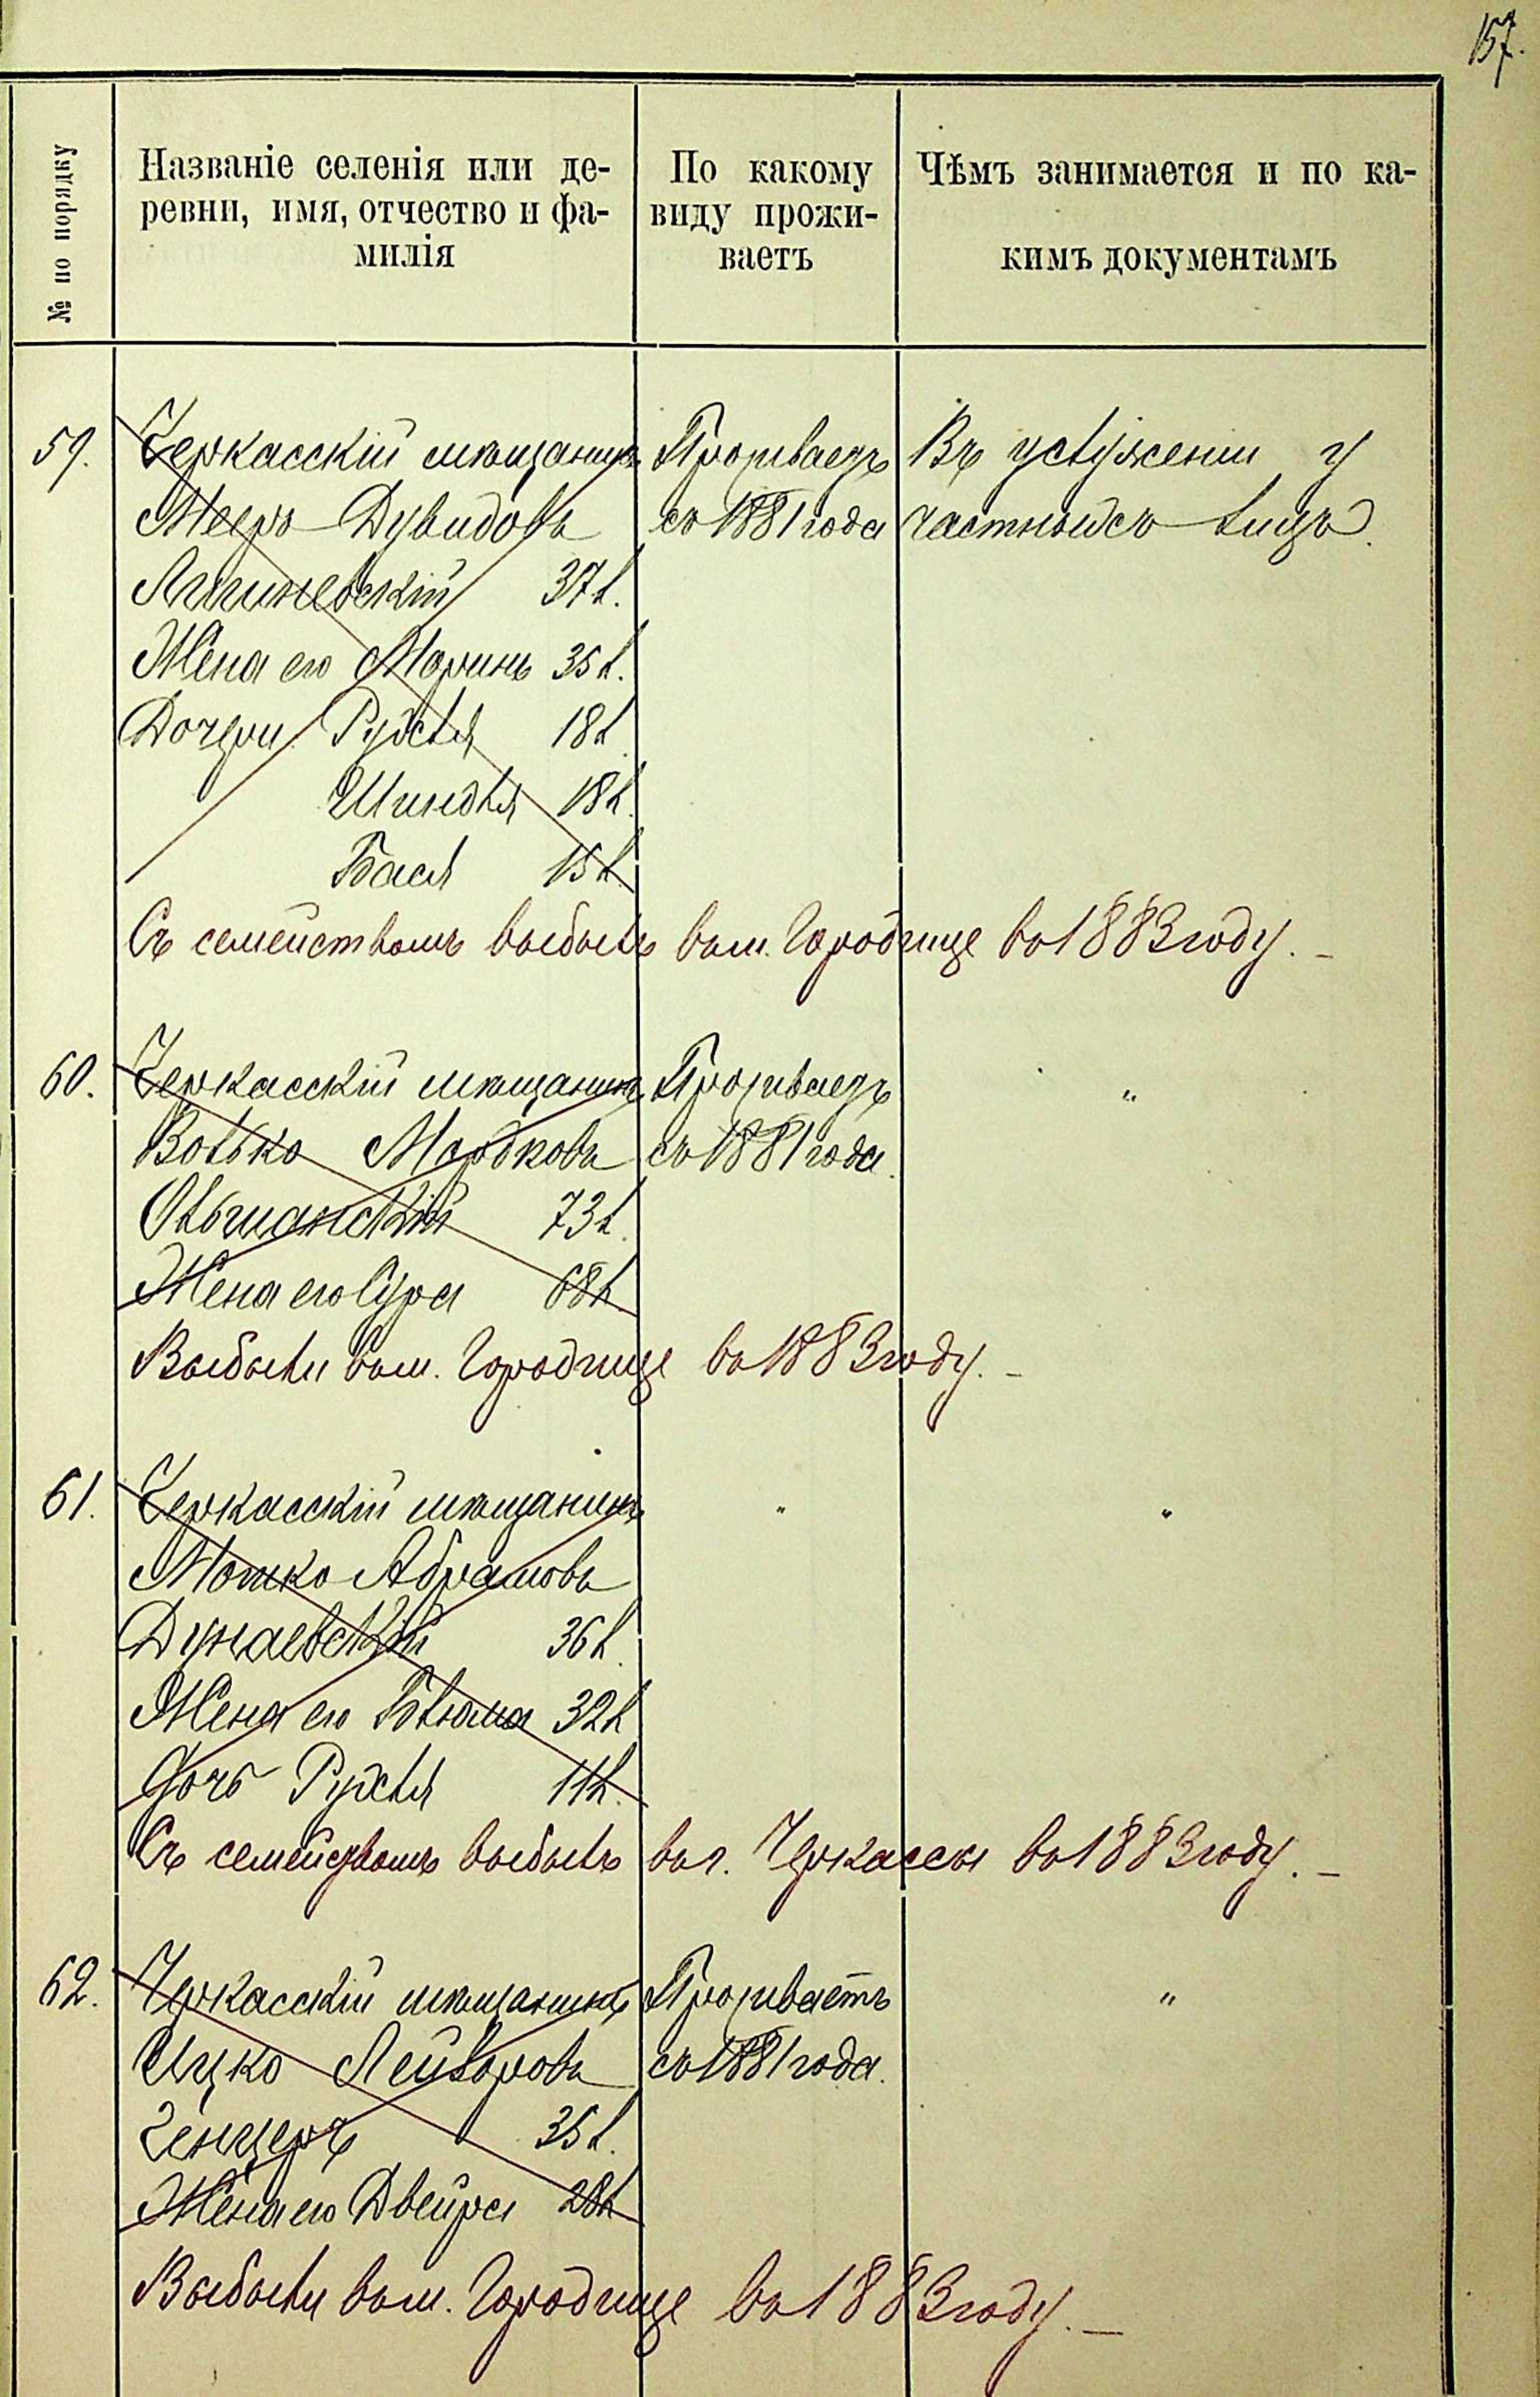 157.
№ по порядку
Названіе селенія или де-
ревни, имя, отчество и фа-
милія
По какому
виду прожи-
ваетъ
Чѣмъ занимается и по ка-
кимъ документамъ
59.
Черкасскій мѣщанинъ
Мееръ Дувидовъ
37 л.
Жена его 35 л.
Дочери Рухля 18 л.
Шиндля 18 л.
Бася 15 л.
Проживаетъ
съ 1881 года
Въ услуженіи у
частныхъ лицъ.
Съ семействомъ выбылъ въ м. Городище въ 1883 году. –
60.
Черкасскій мѣщанинъ
Волько Мордковъ
Ольшанскій 73 л.
Жена его Сура 68 л.
Проживаетъ
съ 1881 года.
"
Выбыли въ м. Городище въ 1883 году. –
61.
Черкасскій мѣщанинъ
Мошко Абрамовъ
Дунаевскій 36 л.
Жена его Блюма 32 л.
Дочь Рухля 11 л.
"
"
Съ семействомъ выбылъ въ г. Черкассы въ 1883 году. –
62.
Черкасскій мѣщанинъ
Ицко Лейзоровъ
35 л.
Жена его Двейра 28 л.
Проживаетъ
съ 1881 года.
"
Выбыли въ м. Городище въ 1883 году. –